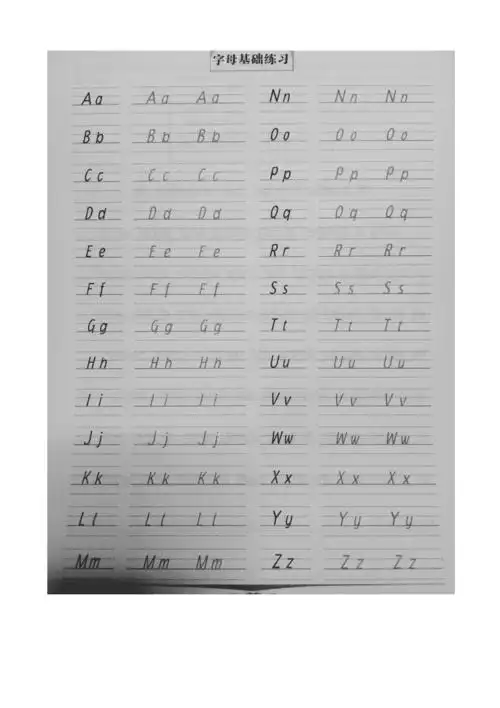 字母基础练习
Aa Aa Aa Nn Nn Nn
Bb Bb Bb Oo Oo Oo
Cc Cc Cc Pp Pp Pp
Dd Dd Dd Qq Qq Qq
Ee Ee Fe Rr Rr Rr
Ff Ff Ff Ss Ss Ss
Gg Gg Gg Tt Tt Tt
Hh Hh Hh Uu Uu Uu
Ii Ii Ii Vv Vv Vv
Jj Jj Jj Ww Ww Ww
Kk Kk Kk Xx Xx Xx
Ll Ll Ll Yy Yy Yy
Mm Mm Mm Zz Zz Zz